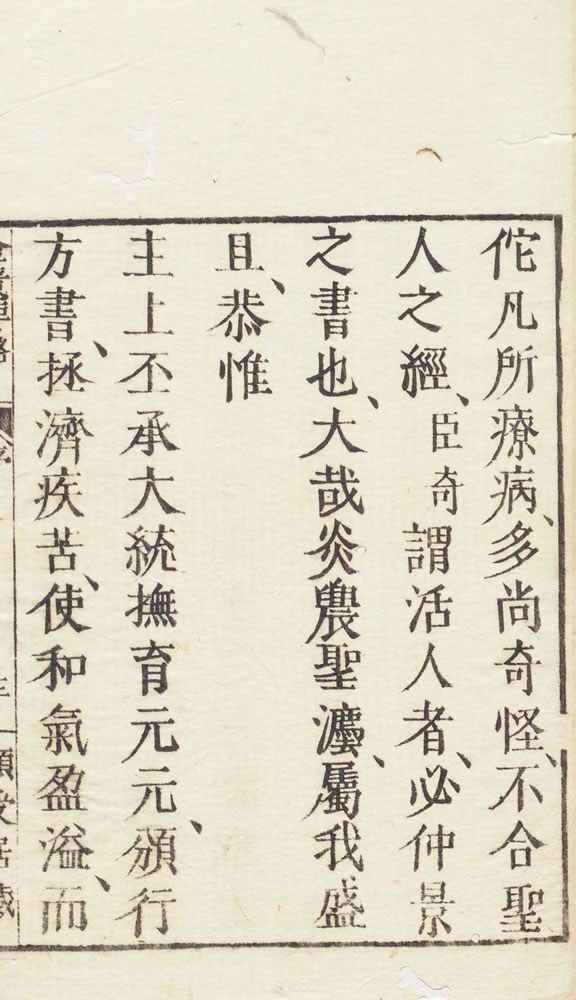 佗凡所療病、多尚奇怪、不合聖
人之經、臣奇謂活人者、必仲景
之書也、大哉炎農聖灋、屬我盛
旦、恭惟
主上丕承大統撫育元元、頒行
方書、拯濟疾苦、使和氣盈溢、而